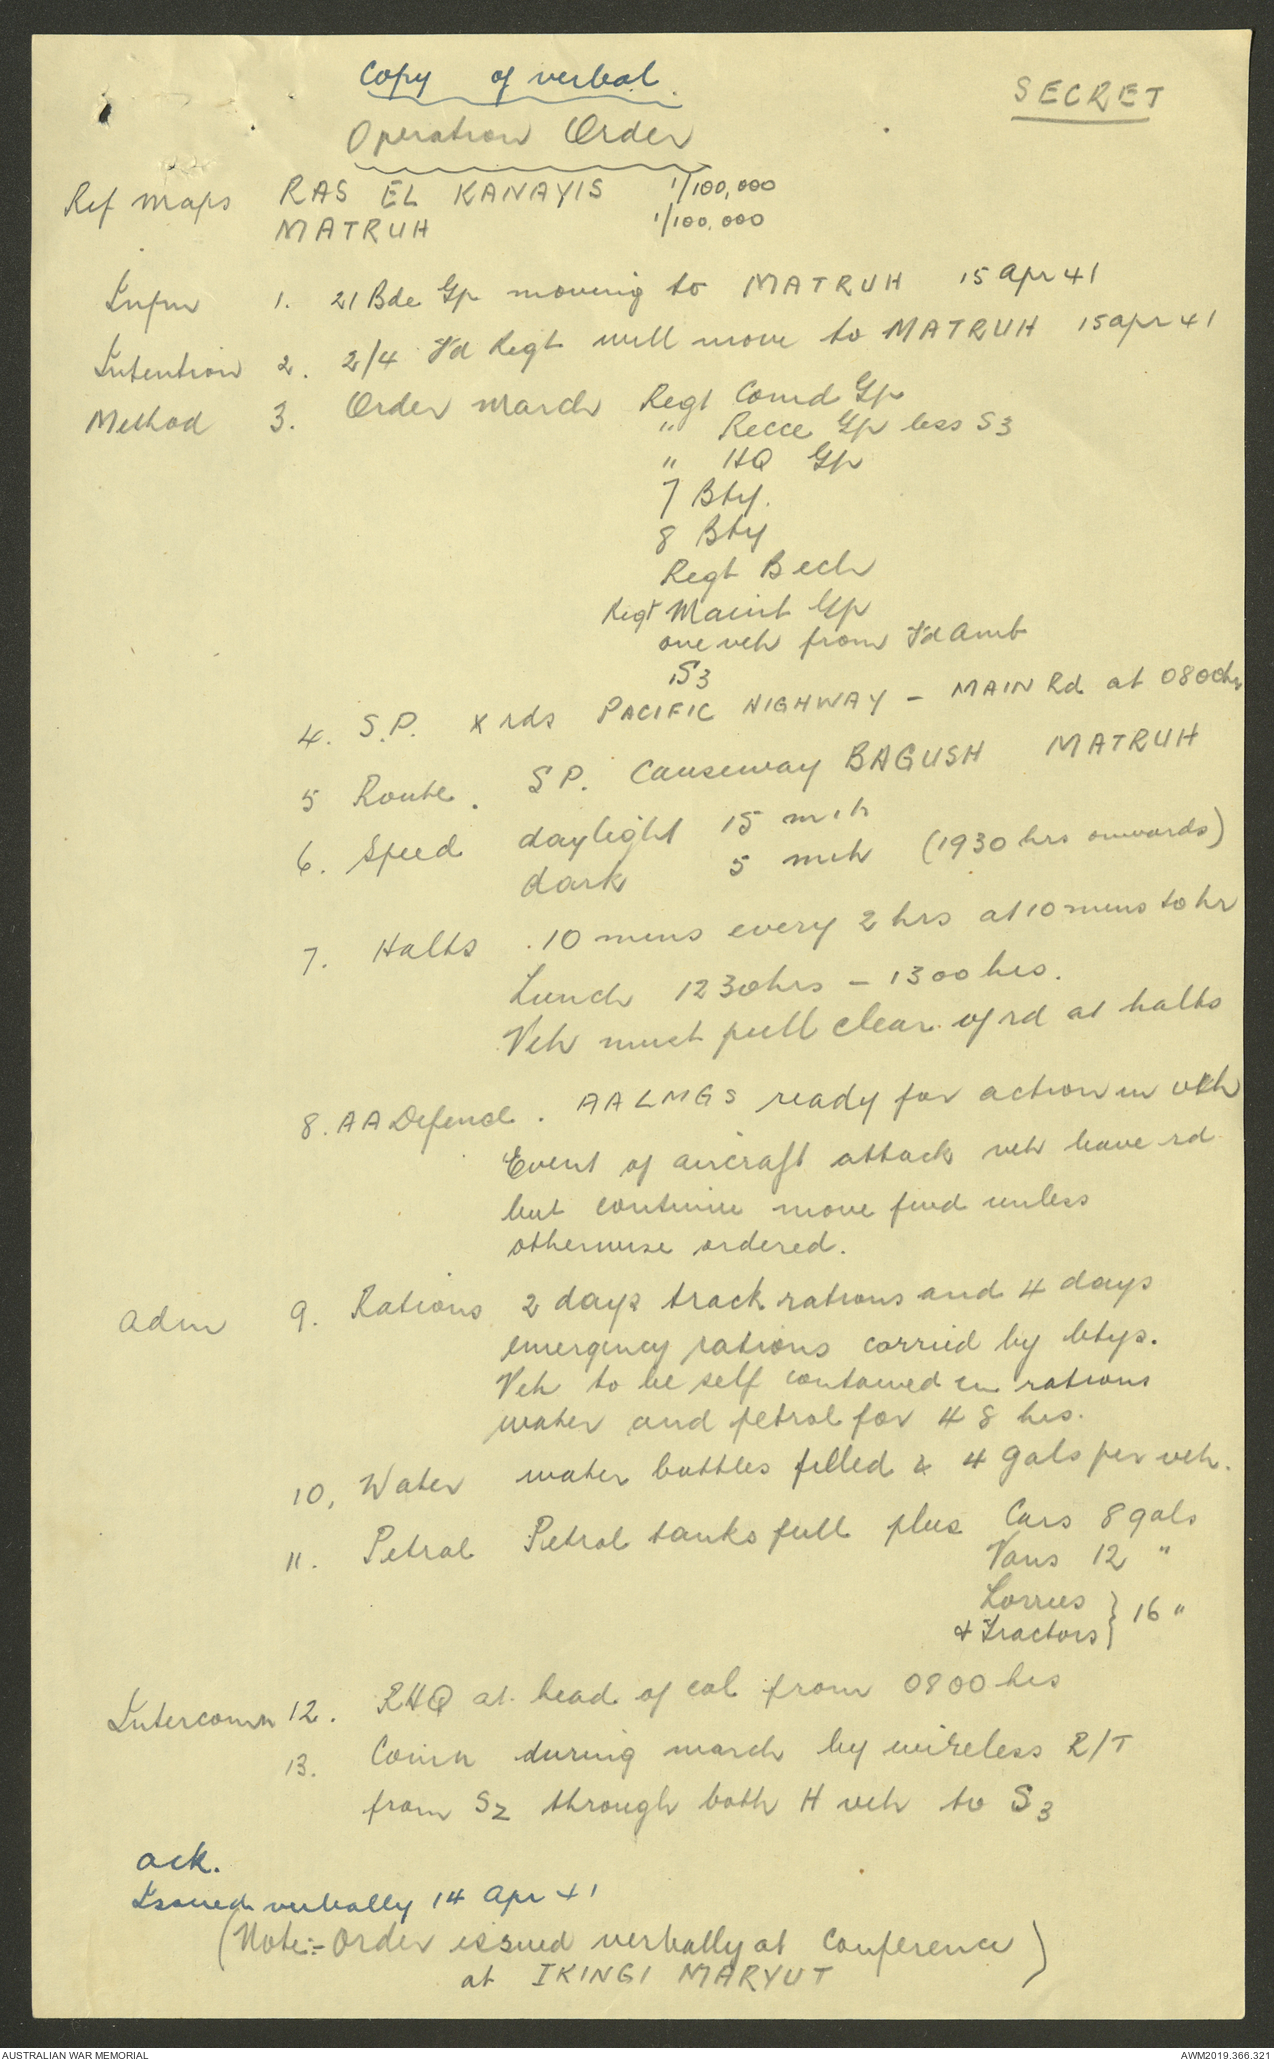 Copy of verbal
SECRET
Operation Order
Ref Maps RAS EL KANAYIS 1/100,000
MATRUH 1/100,000
Infm 1. 21 Bde Gp moving to MATRUH 15 Apr 41
Intention 2. 2/4 Fd Regt will move to MATRUH 15 apr 41
Method 3. Order march Regt Comd Gp
" Recce Gp less S3
" HQ Gp
7 Bty.
8 Bty
Regt Bech
Regt Maint Gp
one veh from Fd Amb
S3
4. S.P. X rds PACIFIC HIGHWAY - MAIN Rd at 0800hrs
5 Route. S P. Causeway BAGUSH MATRUH
6. Speed daylight 15 mih
dark 5 mih (1930 hrs onwards)
7. Halts . 10 mins every 2 hrs at 10 mins to hr
Lunch 1230hrs - 1300 hrs.
Veh must pull clear of rd at halts
8. AA Defence. AALMGS ready for action in veh
Event of aircraft attack veh leave rd
but continue move fwd unless
otherwise ordered.
Adm 9. Rations 2 days track rations and 4 days
emergency rations carried by btys.
Veh to be self contained in rations
water and petrol for 48 hrs.
10. Water water bottles filled & 4 gals per veh.
11. Petrol Petrol tanks full plus Cars 8 gals
Vans 12 "
Lorries
& Tractors } 16 "
Intercomn 12. RHQ at head of col from 0800 hrs
13. Comn during march by wireless R/T
from S2 through both H veh to S3
ack.
Issued verbally 14 Apr 41
(Note:- Order issued verbally at Conference
at IKINGI MARYUT)
AUSTRALIAN WAR MEMORIAL AWM2019.366.321